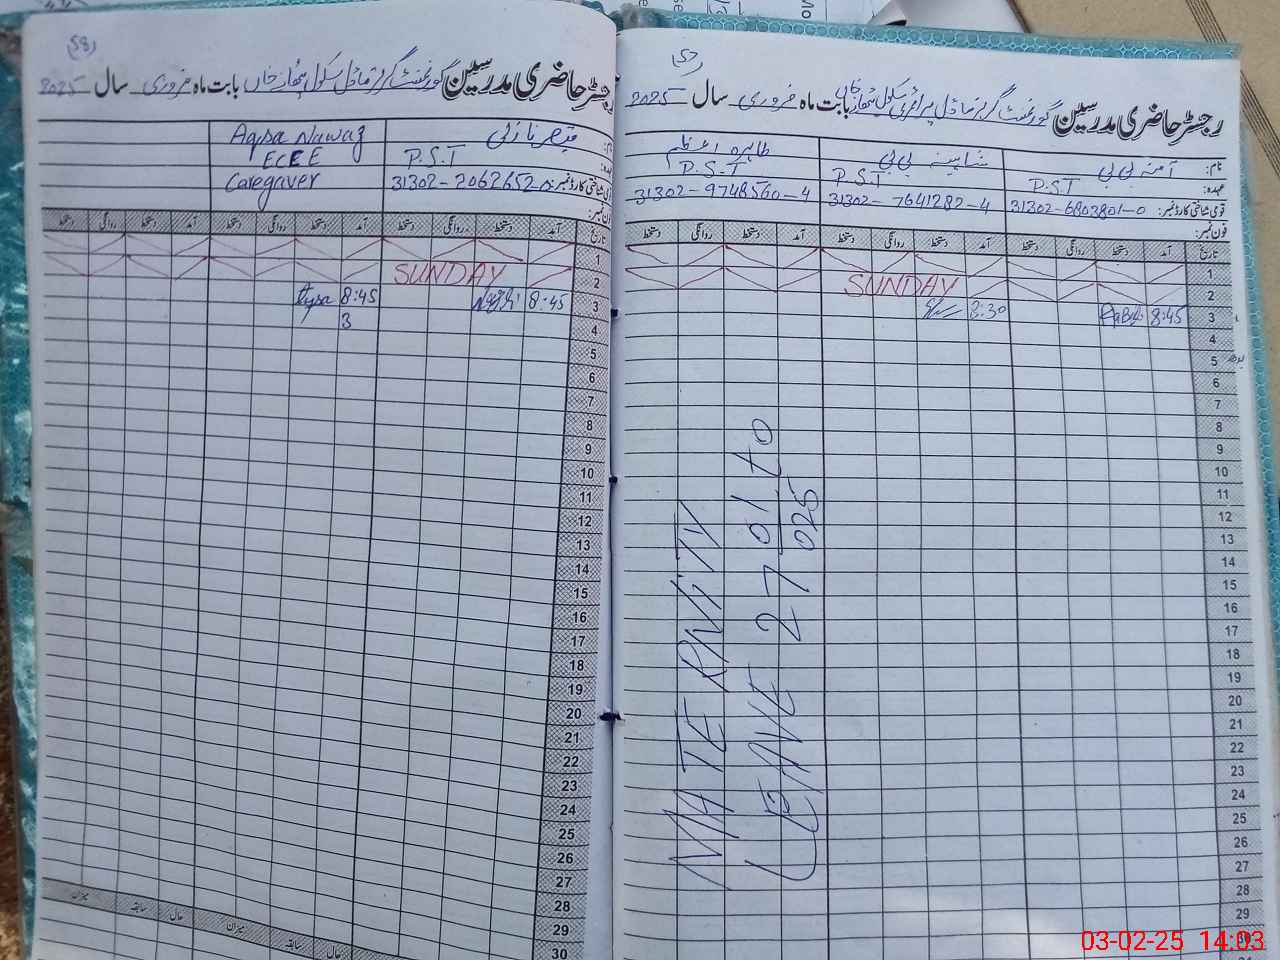 رجسٹر حاضری مدرسین گورنمنٹ گرلز ماڈل پرائمری سکول بابت ماہ فروری سال 2025
نام: آمنہ بی بی شاہینہ بی بی طاہرہ اعظم
عہدہ: P.S.T P.S.T P.S.T
قومی شناختی کارڈ نمبر: 31302-6803801-0 31302-7641282-4 31302-9748560-4
فون نمبر:
تاریخ آمد دستخط روانگی دستخط آمد دستخط روانگی دستخط آمد دستخط روانگی دستخط
1
2 SUNDAY
3 8:45 8:30
4
5
6
7
8
9
10
11
12
13
14
15
16
17
18
19
20
21
22
23
24
25
26
27
28
29
30
MATERNITY
LEAVE 27 01 to
025
رجسٹر حاضری مدرسین گورنمنٹ گرلز ماڈل سکول بابت ماہ فروری سال 2025
نام: قیصر نازلی Aqsa Nawaz
عہدہ: P.S.T ECEE
قومی شناختی کارڈ نمبر: 31302-2062652-0 Caregaver
فون نمبر:
تاریخ آمد دستخط روانگی دستخط آمد دستخط روانگی دستخط آمد دستخط روانگی دستخط
1
2 SUNDAY
3 8:45 8:45 Aqsa
4 3
5
6
7
8
9
10
11
12
13
14
15
16
17
18
19
20
21
22
23
24
25
26
27
28
29
30
حال سابقہ میزان حال سابقہ میزان
03-02-25 14:03